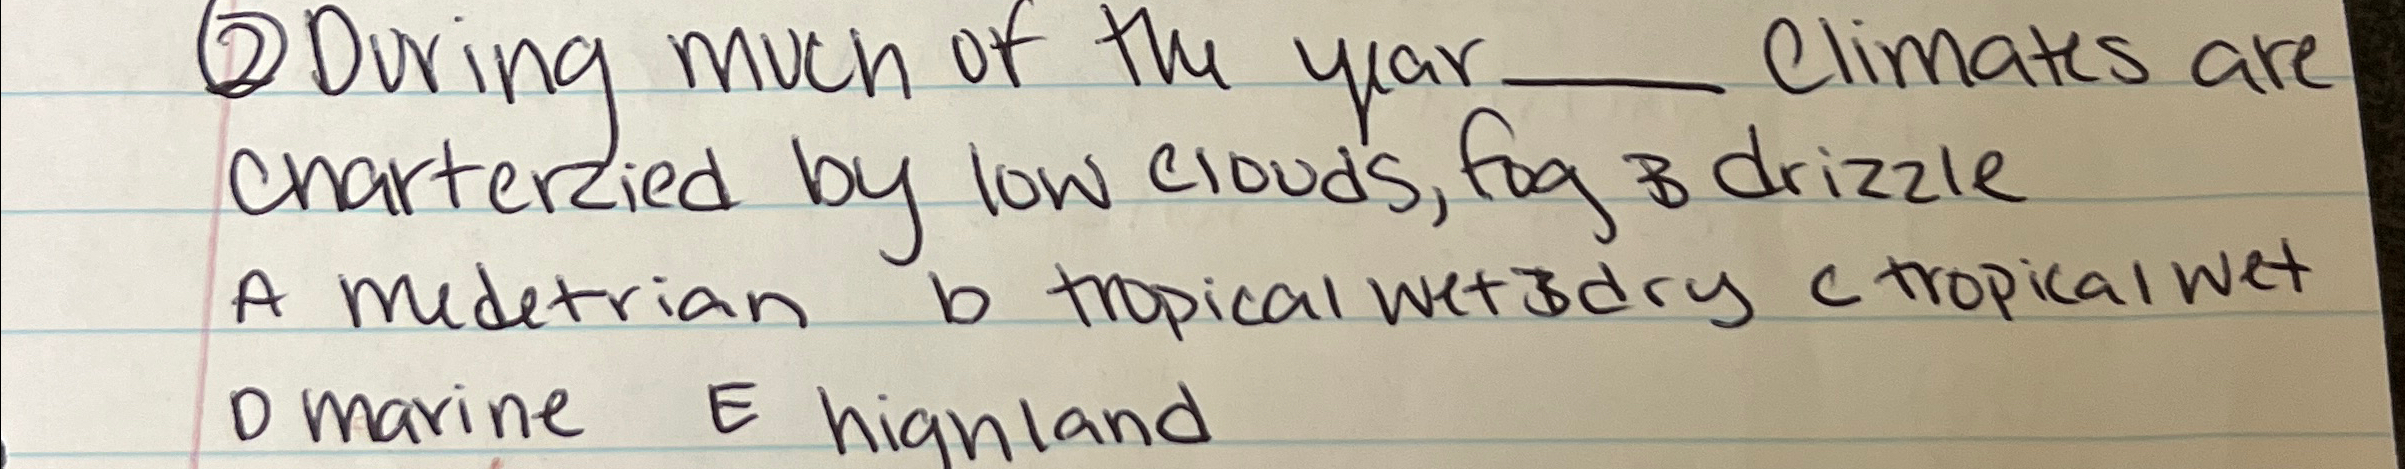 ② During much of the year ____ climates are
charterzied by low clouds, fog & drizzle
A medetrian b tropical wet & dry c tropical wet
D marine E highland